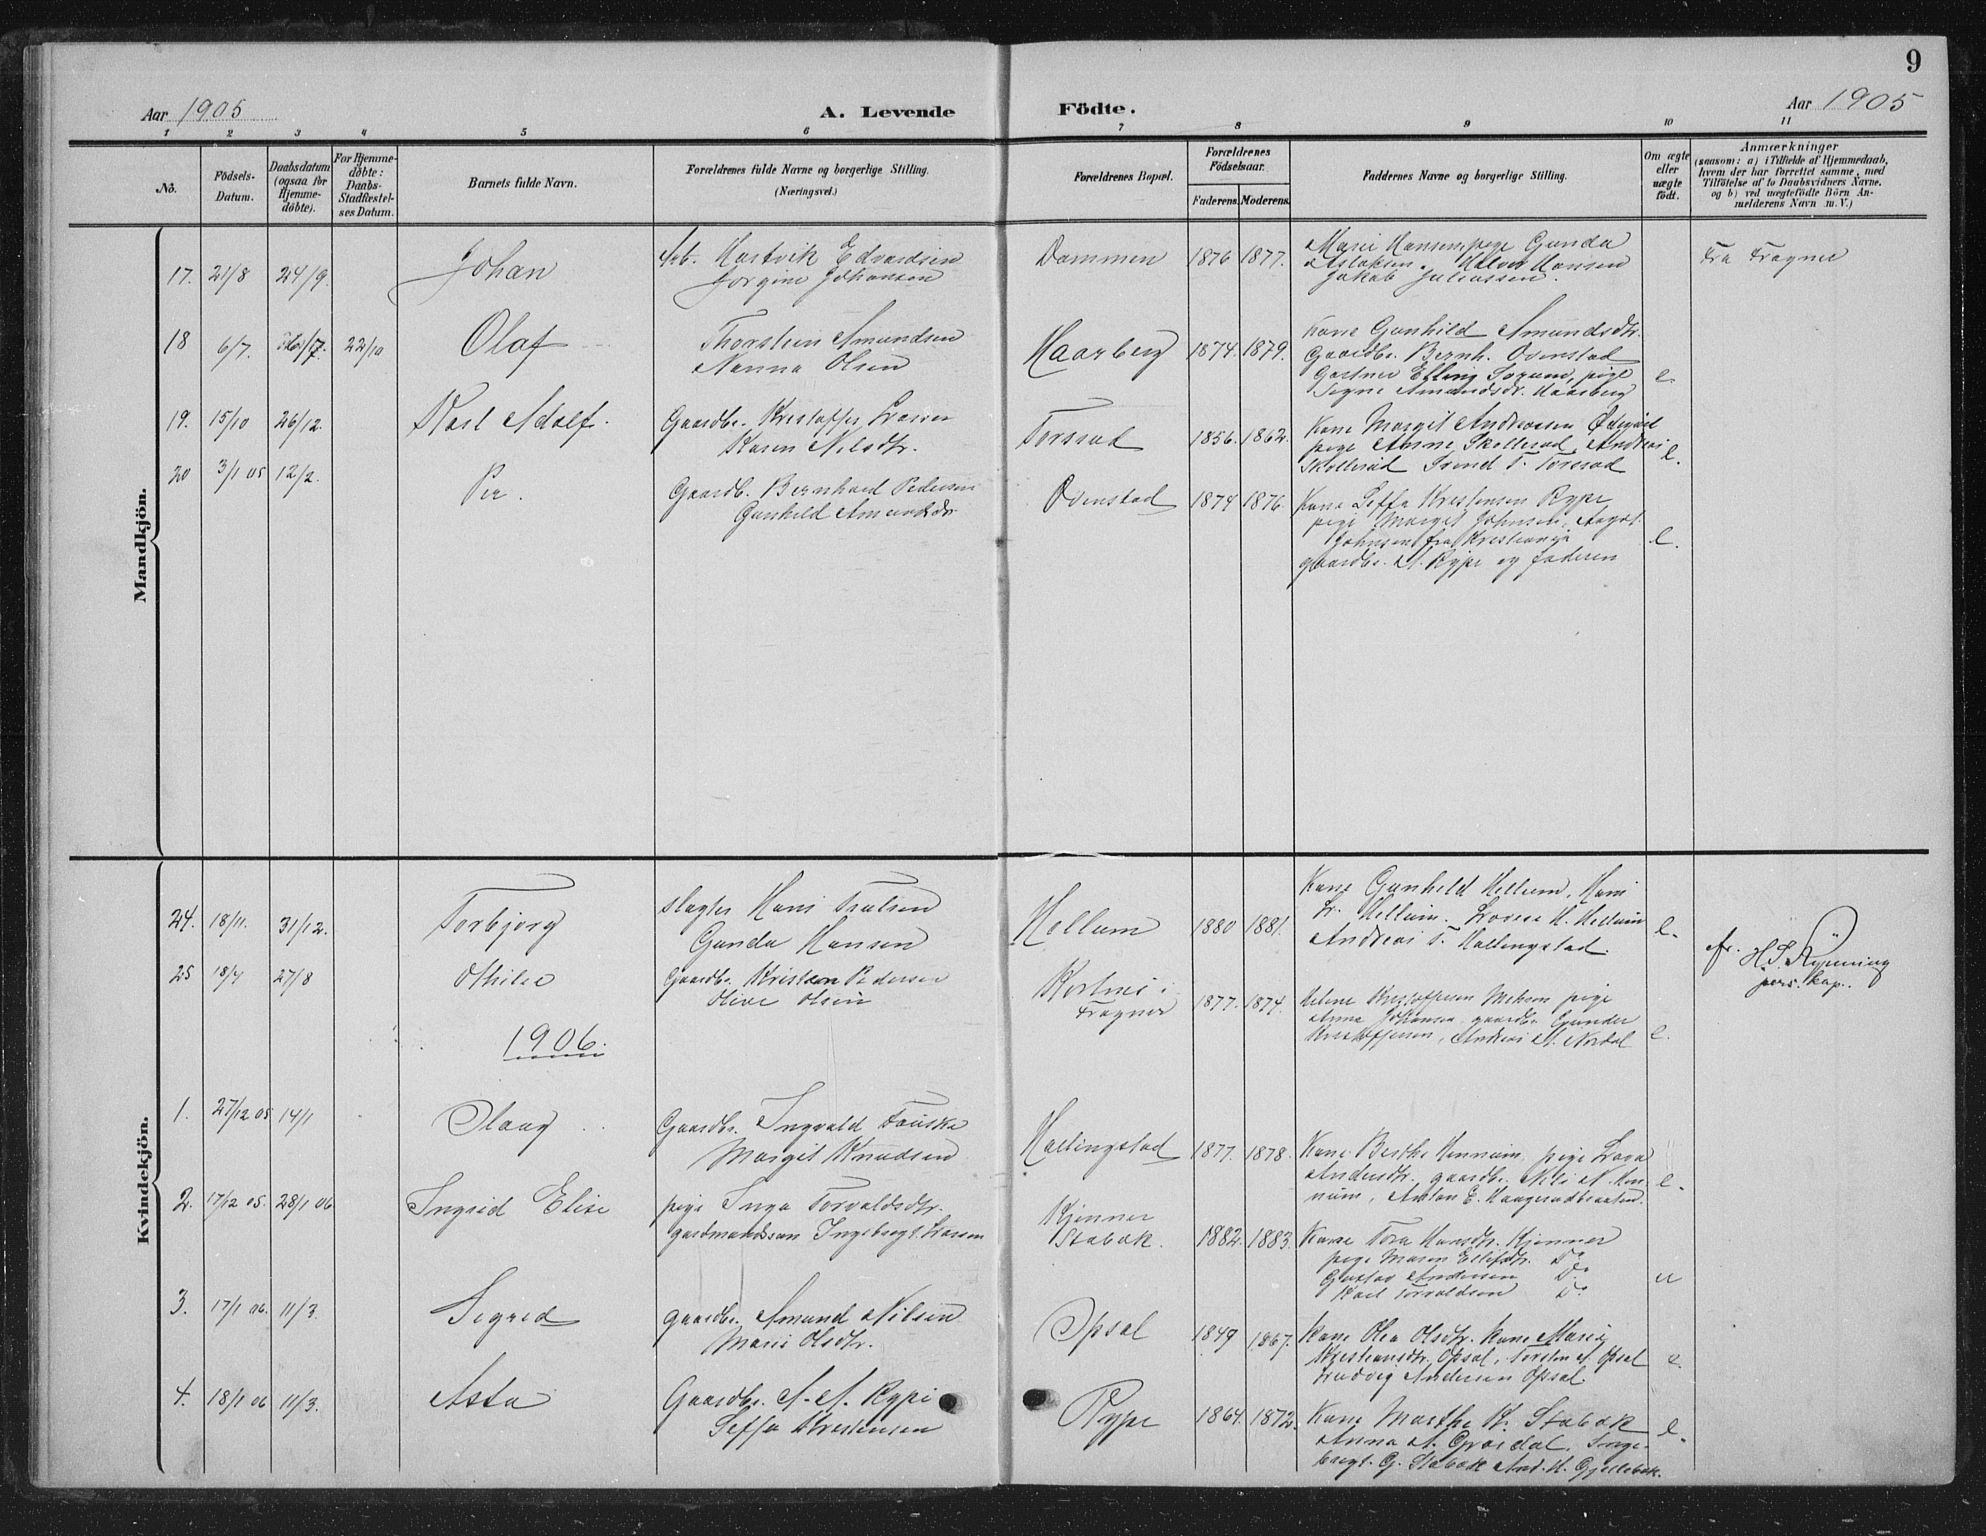 9
Aar 1905
A. Levende
Födte.
Aar 1905
1 2 3 4 5 6 7 8 9 10 11
No.
Födsels-Datum.
Daabsdatum (ogsaa for Hjemme-döbte).
For Hjemme-döbte: Daabs-Stadfæstel-ses Datum.
Barnets fulde Navn.
Forældrenes fulde Navne og borgerlige Stilling.
(Næringsvei.)
Forældrenes Bopæl.
Forældrenes Födselsaar.
Faderens. Moderens.
Faddernes Navne og borgerlige Stilling.
Om ægte eller uægte födt.
Anmærkninger
(saasom: a) i Tilfælde af Hjemmedaab, hvem der har forrettet samme, med Tilföielse af to Daabsvidners Navne, og b) ved uægtefödte Börn Anmelderens Navn m. V.)
Mandkjön.
17. 21/8 24/9. Johan
Arb. Hartvik Edvardsen
Jorgine Johansen
Dammen 1876 1877.
Marie Hansen, pige Gunda
Aslaksen, Hansen
Jakob Juliussen.
Fra Frogner
18 6/7. 22/10 Olaf
Thorstein Amundsen
Nanna Olsen
Haarberg 1874. 1879.
Kone Gunhild Amundsdtr.
Gaardbr. Bernh. Ovenstad
Gartner Elling Sørum, pige
Signe Amundsdtr. Haarberg
e.
19. 15/10 26/12. Karl Adolf.
Gaardbr. Kristoffer
Karen Nilsdtr.
Torsrud 1856. 1862.
Kone Margit Andreasen Ødegård
pige Anne Skollerud, Andreas
Skollerud Svend T. Torsrud
e.
20 3/1 05 12/2. Per.
Gaardb. Bernhard Pedersen
Gunhild Amundsdtr
Ovenstad 1874 1876.
Kone Seffa Kristensen Rype
pige Margit Johnsen, August
Johnsen fra Kristiania
gaardbr. A. Rype og faderen
e.
Kvindekjön.
24. 18/11. 31/12. Torbjørg
slagter Hans Trulsen
Gunda Hansen
Hellum 1880 1881.
Kone Gunhild Hellum, Hans
Hellum. H. Hellum
Andreas T. Hallingstad.
e.
25 18/7 27/8 Othilie
Gaardbr. Kristian Pedersen
Olive Olsen
i
Frogner 1877. 1874.
Helene Kristoffersen pige
Anna Johansen gaardbr. Gunder
Kristoffersen, Andreas A. Nordal
e.
fr. H. S. Rynning
pers. kap.
1906.
1. 27/12 05 14/1 Slaug
Gaardbr. Ingvald Fauske
Margit Knudsen
Hallingstad 1877. 1878.
Kone Berthe Hennum, pige
Andersdtr. gaardbr. Nils N. Hennum, Anton E. Haagenrudbraaten.
e.
2. 17/12 05. 28/1 06 Ingrid Elise
pige Inga Torvaldsdtr.
gaardmandssøn Ingebregt Larsen
Kjenner
Stabæk. 1882. 1883.
Kone Tora Hansdtr. Kjenner
pige Maren Ellefsdtr. Do
Gustav Andersen Do
Karl Torvaldsen Do
u
3. 17/1 06. 11/3. Sigrid
gaardbr. Amund Nilsen
Marie Olsdtr.
Opsal 1849 1867.
Kone Olea Olsdtr. Kone Marie
Kristiansdtr. Opsal, Torsten A. Opsal
Ludvig Andersen Opsal.
e.
4. 18/1 06 11/3. Asta
Gaardbr. A. A. Rype
Seffa Kristensen
Rype 1864. 1872.
Kone Marthe K. Stabæk
Anna A. Grøsdal, Ingebregt G. Stabæk And. H. Gjellebæk.
e.